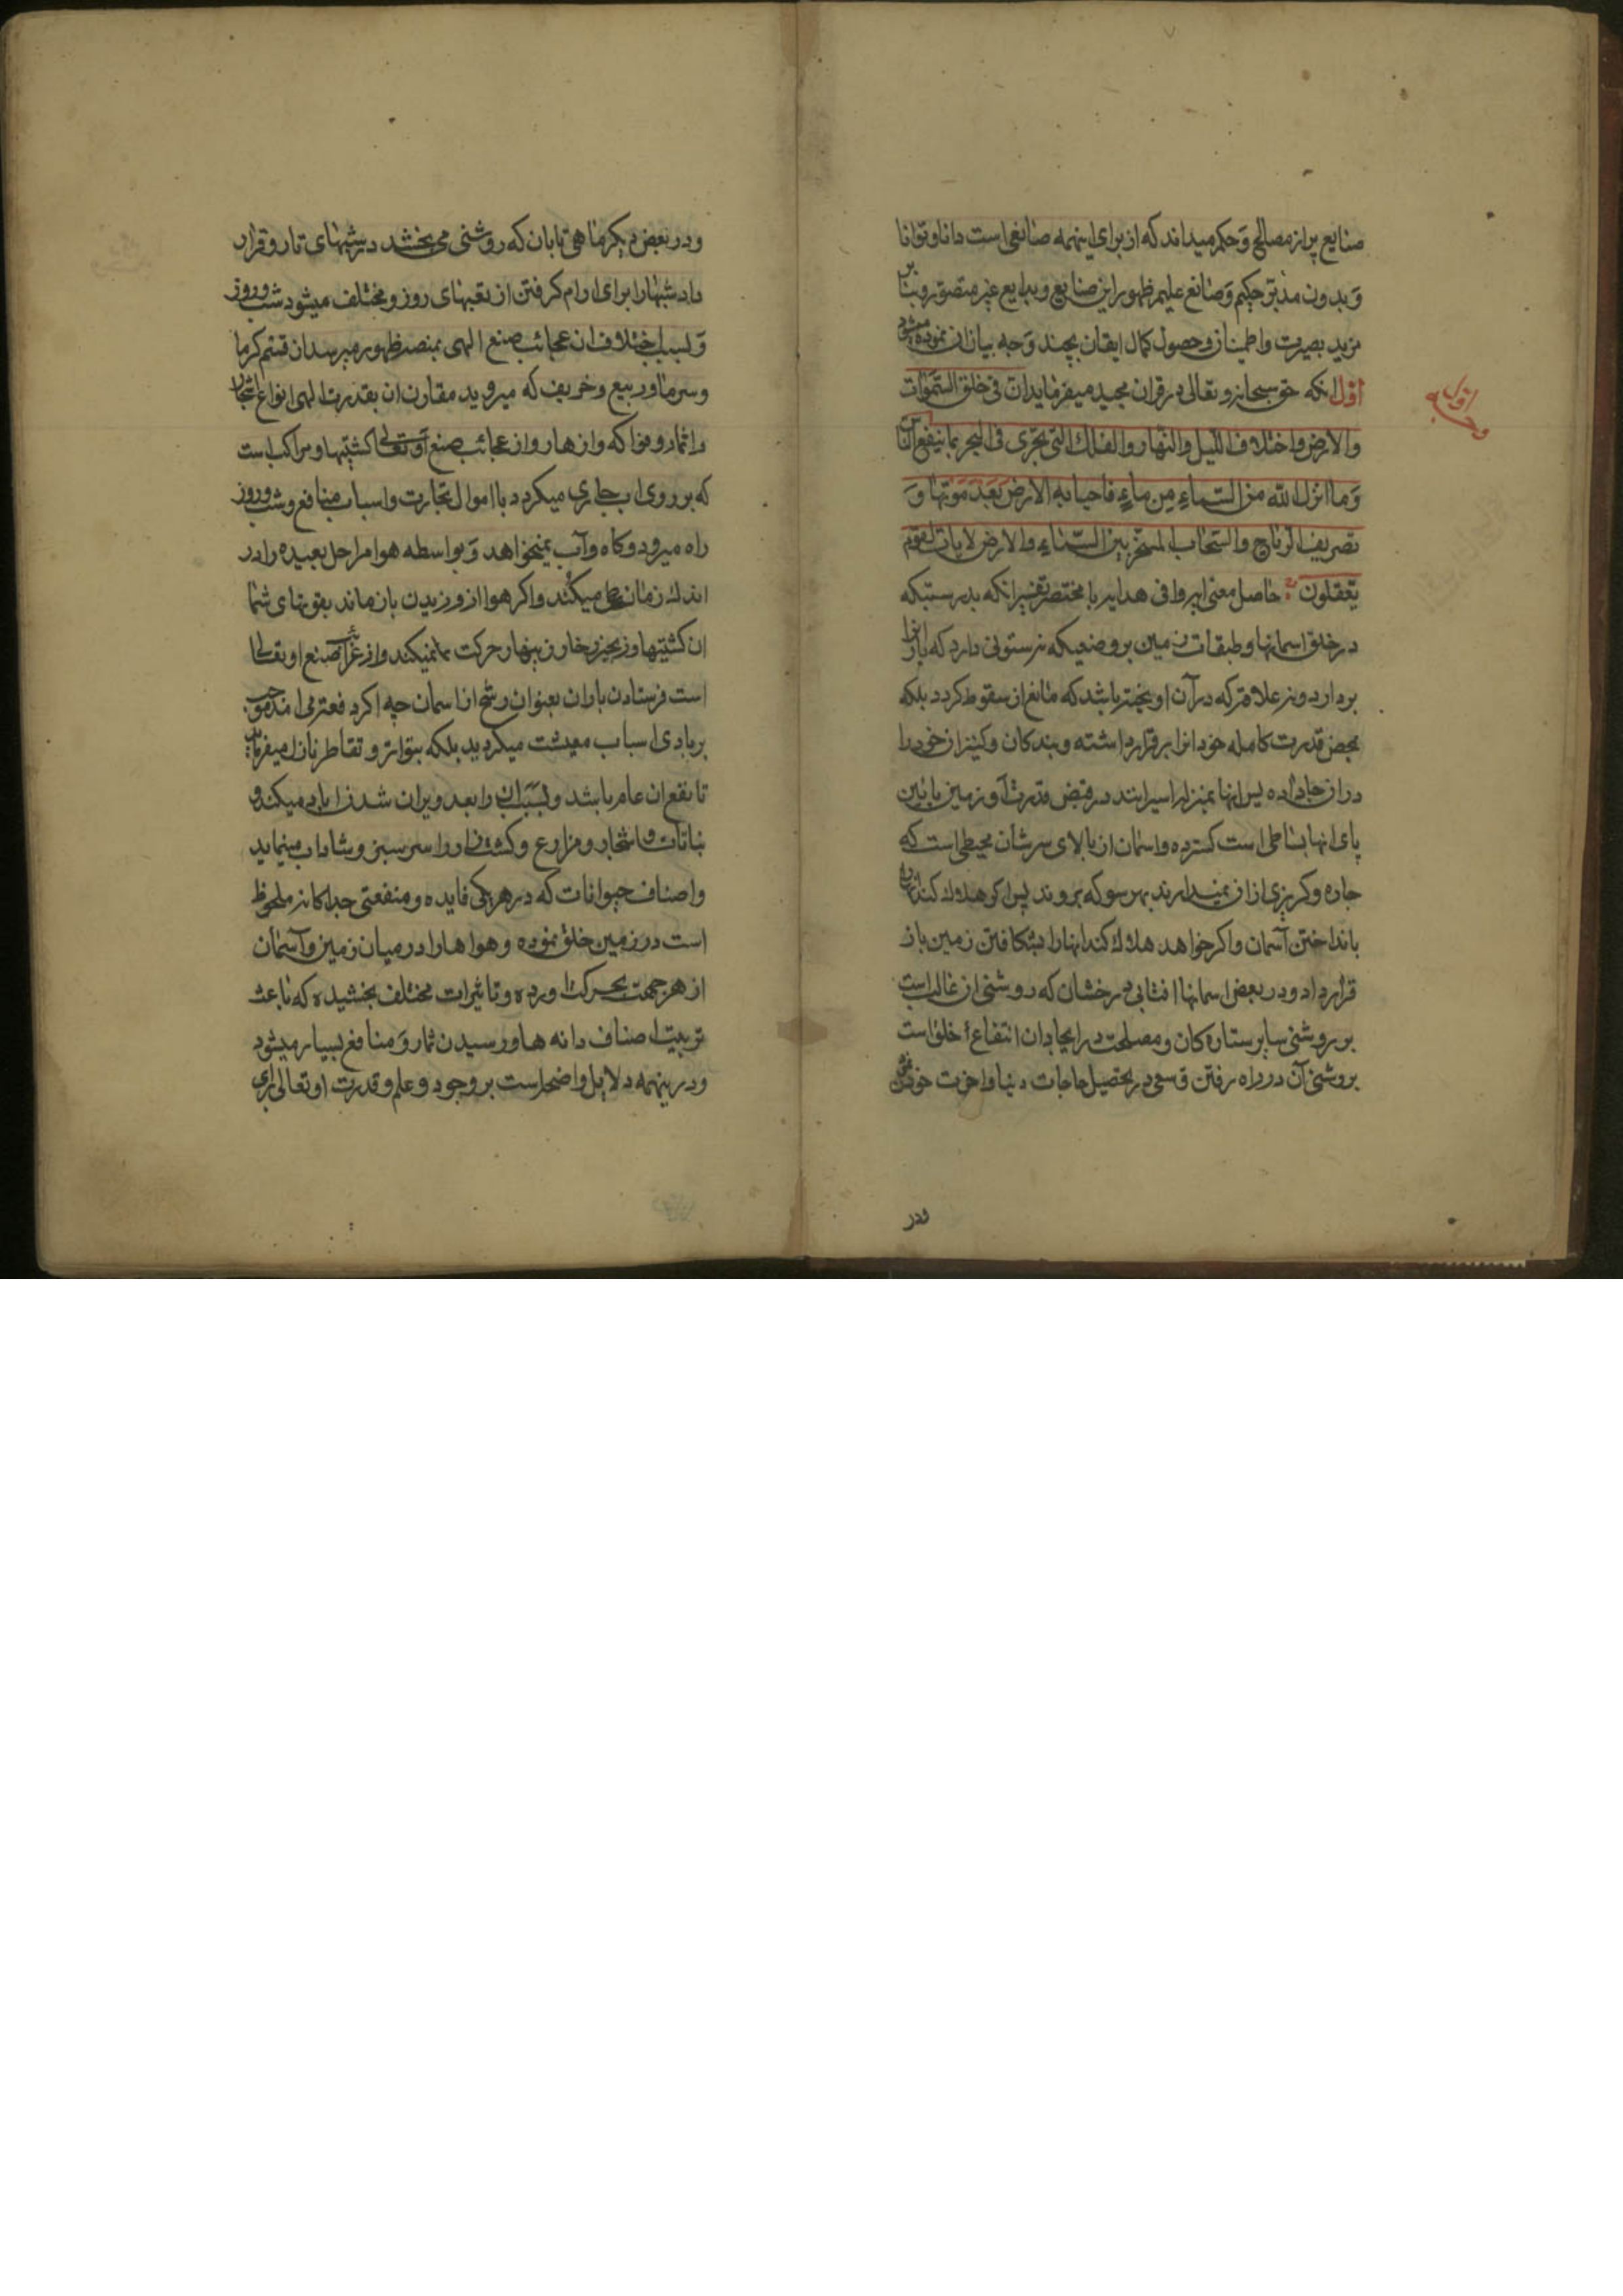 صنایع پر از مصالح و حکم میداند که از برای اینهمه صانعی است دانا و توانا
و بدون مدبّر حکیم و صانع علیم ظهور این صنایع و بدایع غیر متصوّر و بنا بر
مزید بصیرت و اطمینان و حصول کمال ایقان بچند وجه بیان آن نموده میشود
وجه اول
اوّل انکه حق سبحانه و تعالی در قران مجید میفرماید ان فی خلق السّموات
والارض واختلاف اللّیل والنّهار والفلک التی تجری فی البحر بما ینفع النّاس
وما انزل الله من السّماء من ماء فاحیا به الارض بعد موتها و
تصریف الرّیاح والسّحاب المسخّر بین السّماء والارض لایات لقوم
یعقلون حاصل معنی ایه وافی هدایه با مختصر تفسیر انکه بدرستیکه
در خلق اسمانها و طبقات زمین بر وضعیکه نه ستونی دارد که بار انرا
بردارد و نه علاقه که در آن اویخته باشد که مانع از سقوط کردد بلکه
بمحض قدرت کامله خود انرا برقرار داشته و بندکان و کنیزان خود را
در ان جا داده پس اینها بمنزله اسیرانند در قبض قدرت او زمین پائین
پای انها بساطی است کسترده و اسمان از بالای سرشان محیطی است که
چاره و کریزی از ان نمیدارند بهر سو که بروند پس اکر هلاک کند انها را
بانداختن آسمان و اکر خواهد هلاک کند انها را بشکافتن زمین باز
قرار داد و در بعض اسمانها افتابی درخشان که روشنی ان غالب است
بر روشنی سایر ستاره کان و مصلحت در ایجاد ان انتفاع خلق است
بروشنی آن در راه رفتن و سعی در تحصیل حاجات دنیا و اخرت خودشان
ودر
و در بعض دیکر ماهی تابان که روشنی می بخشد در شبهای تار و قرار
داد شبها را برای ارام کرفتن از تعبهای روز و مختلف میشود شب و روز
و بسبب اختلاف ان عجائب صنع الهی بمنصه ظهور میرسد ان قسم کرما
و سرما و ربیع و خریف که میروید مقارن ان بقدرت الهی انواع اشجار
و اثمار و فواکه و ازهار و از عجائب صنع او تعالی کشتیها و مراکب است
که بر روی اب جاری میکردد با اموال تجارت و اسباب منافع و شب و روز
راه میرود و کاه و آب نمیخواهد و بواسطه هوا مراحل بعیده را در
اندک زمان طی میکند و اکر هوا از وزیدن باز ماند بقوتهای شما
ان کشتیها و زبحر زخار زینهار حرکت نمیکند و از غرائب صنع او تعالی
است فرستادن باران بعنوان رشح از اسمان چه اکر دفعة می امد موجب
بربادی اسباب معیشت میکردید بلکه بتواتر و تقاطر نازل میفرماید
تا نفع ان عام باشد و بسبب ان را بعد ویران شدن اباد میکند و
نباتات و اشجار و مزارع و کشتزار را سرسبز و شاداب مینماید
و اصناف حیوانات که در هر یکی فایده و منفعتی جداکانه ملحوظ
است در زمین خلق نموده و هواها را در میان زمین و آسمان
از هر جهت بحرکت اورده و تاثیرات مختلف بخشیده که باعث
تربیت اصناف دانه ها و رسیدن ثمار و منافع بسیار میشود
و در ینهمه دلایل واضحه است بر وجود و علم و قدرت او تعالی برای